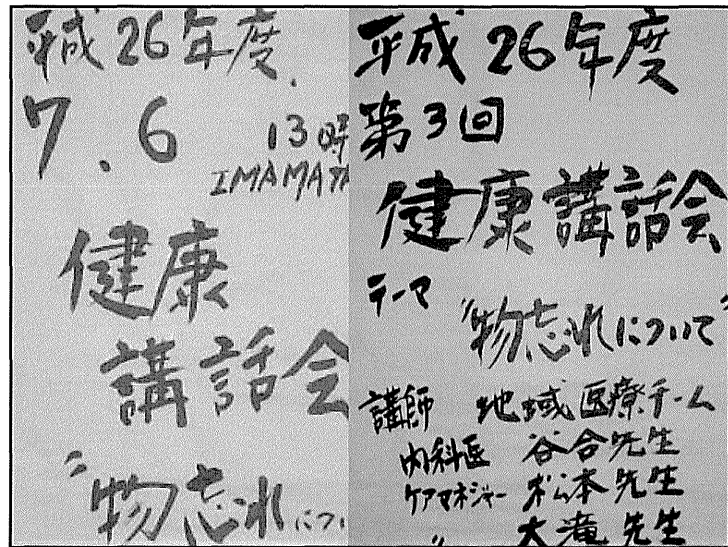 平成26年度
7.6 13時
IMAMATA
健康
講話会
"物忘れについ
平成26年度
第3回
健康講話会
テーマ
"物忘れについて"
講師 地域医療チーム
内科医 谷合先生
ケアマネジャー 松本先生
〃 大滝先生